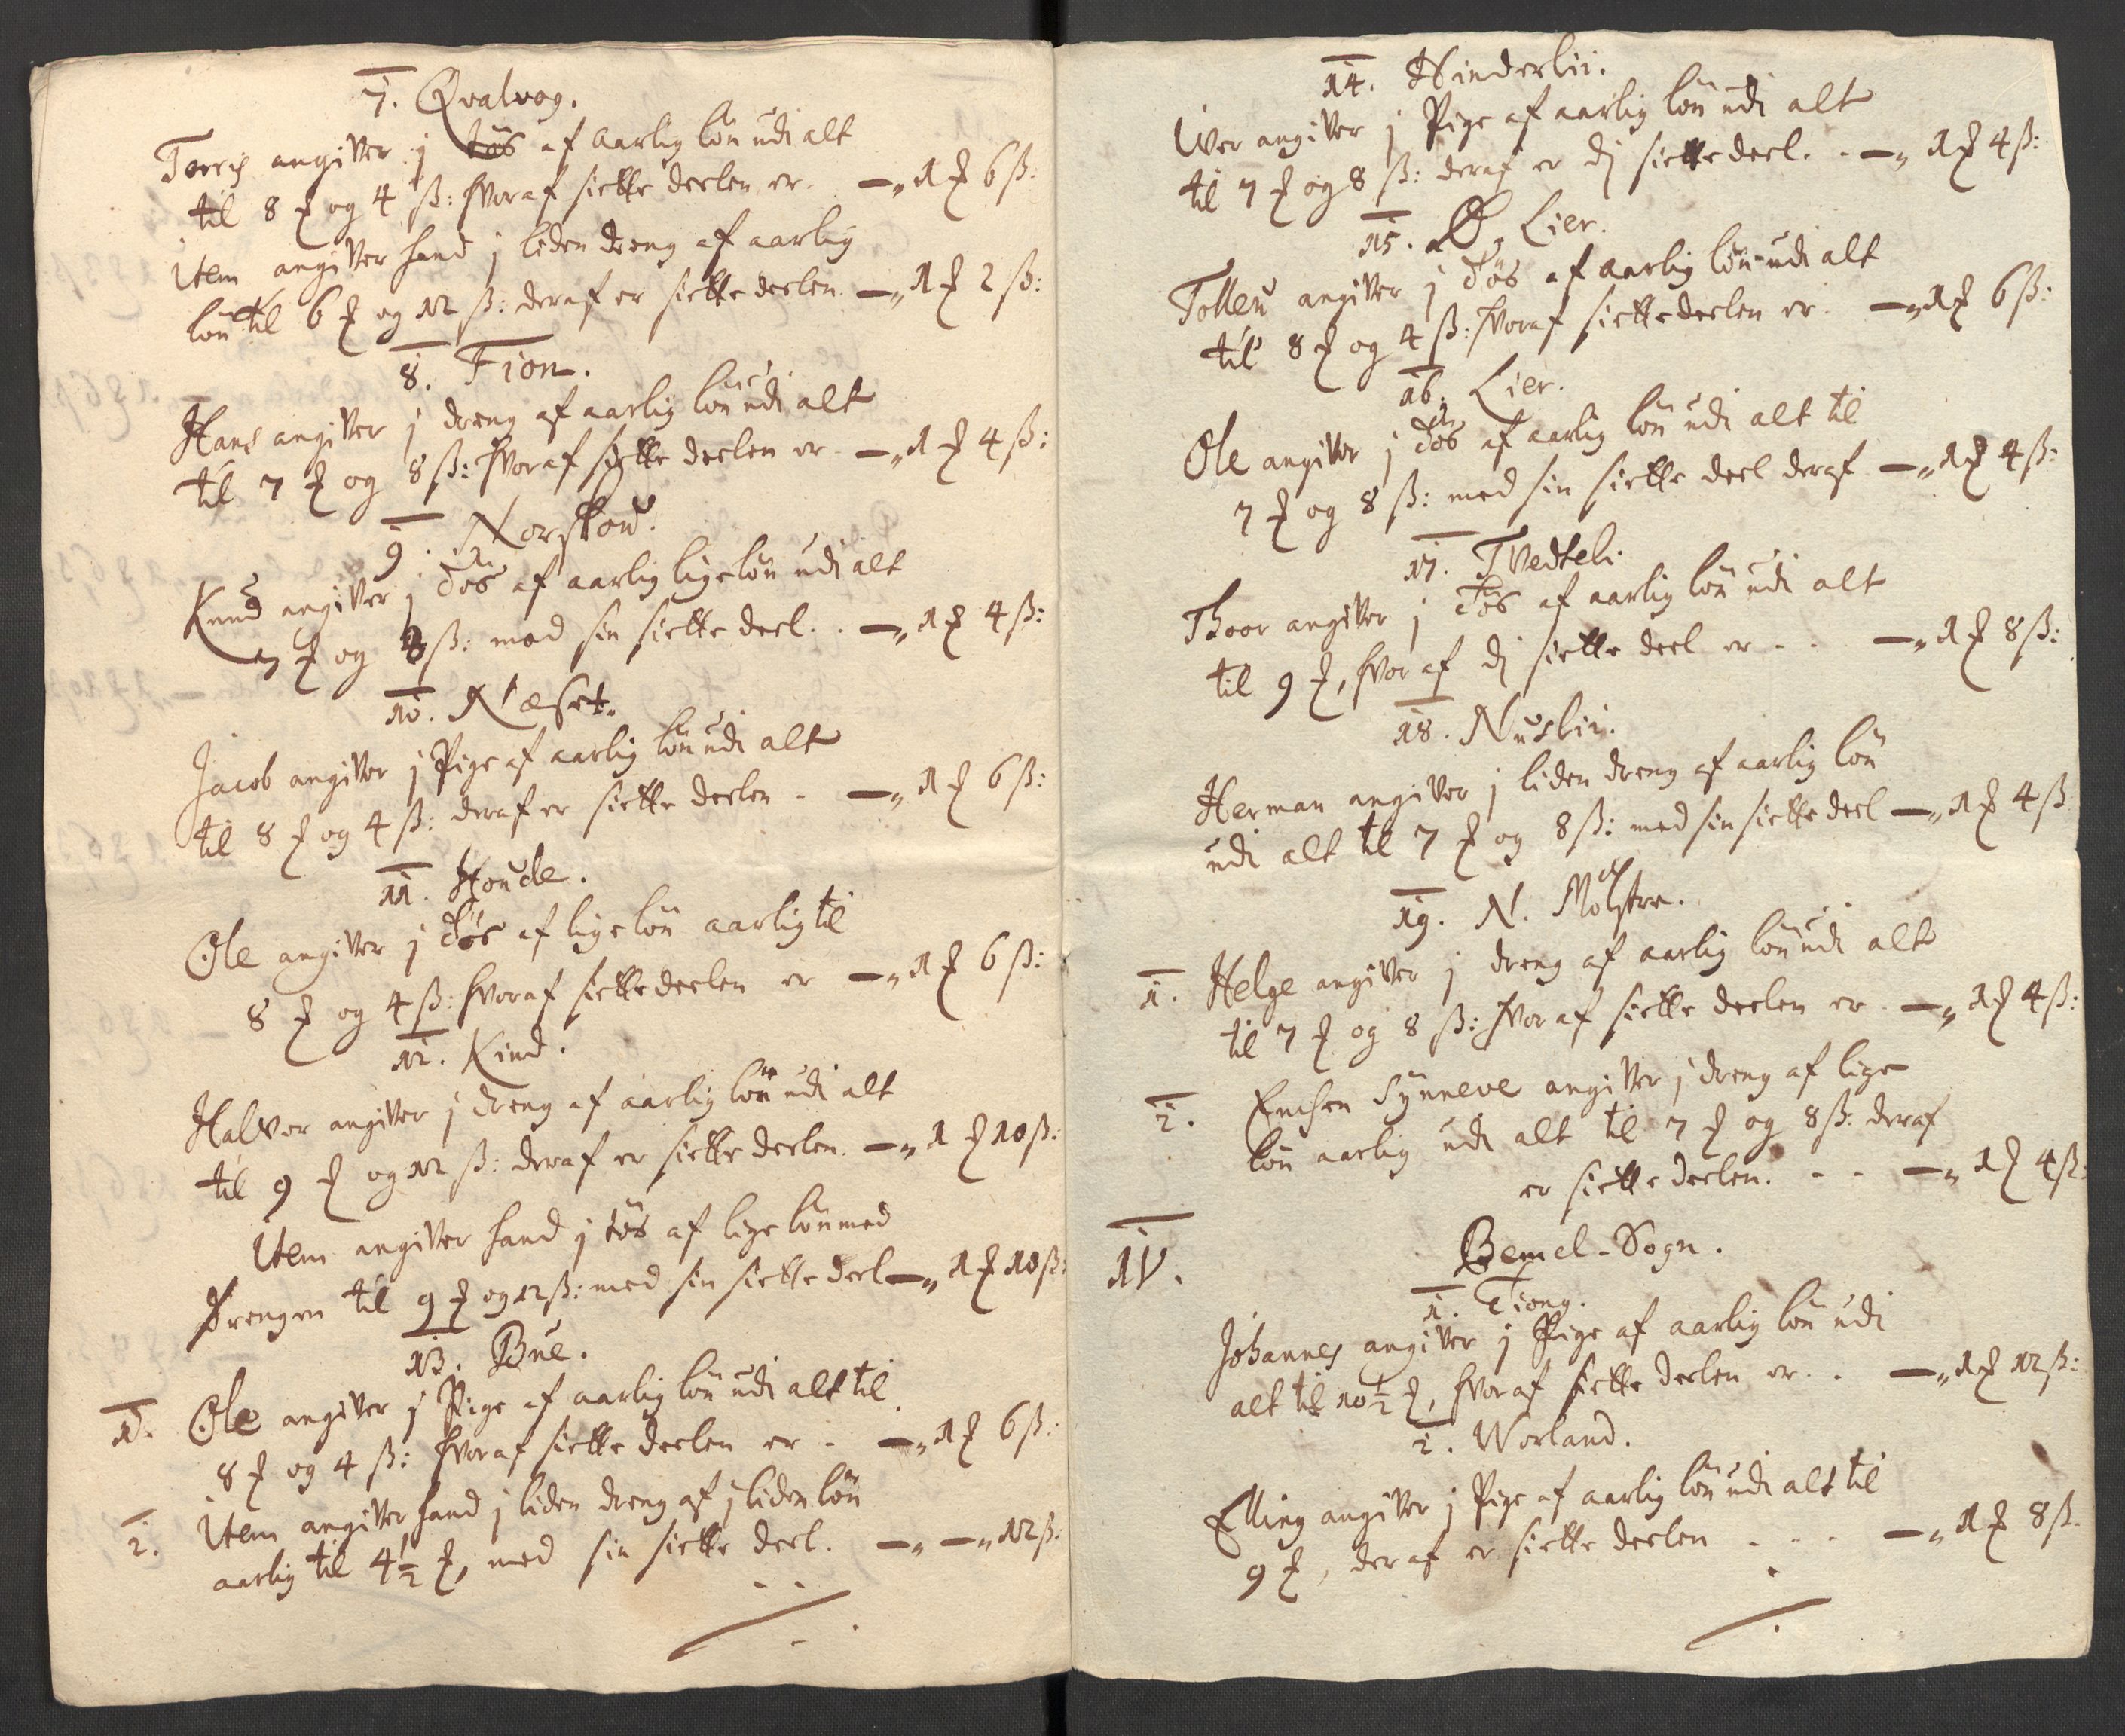 7. Qvalvog.
Torris angiver j tøs af aarlig løn udi alt
til 8 ℳ og 4 ß: hvoraf siette deelen er. —„ 1 ℳ 6 ß:
Item angiver hand j liden dreng af aarlig
løn til 6 ℳ og 12 ß: deraf er siette deelen. —„ 1 ℳ 2 ß:
8. Fion.
Hans angiver j dreng af aarlig løn udi alt
til 7 ℳ og 8 ß: hvoraf siette deelen er —„ 1 ℳ 4 ß:
9. Norskou.
Knud angiver j Tøs af aarlig lige løn udi alt
7 ℳ og 8 ß: med sin siette deel. . —„ 1 ℳ 4 ß:
10. Næset.
Jacob angiver j Pige af aarlig løn udi alt
til 8 ℳ og 4 ß: deraf er siette deelen - —„ 1 ℳ 6 ß:
11. Houcle.
Ole angiver j Tøs af lige løn aarlig til
8 ℳ og 4 ß: hvoraf siette deelen er —„ 1 ℳ 6 ß:
12. Kind.
Halvor angiver j dreng af aarlig løn udi alt
til 9 ℳ og 12 ß: deraf er siette deelen. —„ 1 ℳ 10 ß:
Item angiver hand j tøs af lige løn med
Drengen til 9 ℳ og 12 ß: med sin siette deel —„ 1 ℳ 10 ß:
13. Bue.
1. Ole angiver j Pige af aarlig løn udi alt til
8 ℳ og 4 ß: hvoraf siette deelen er - —„ 1 ℳ 6 ß:
2. Item angiver hand j liden dreng af j liden løn
aarlig til 4 1/2 ℳ, med sin siette deel. —„ —„ 12 ß:
14. Hinderlii.
Iver angiver j Pige af aarlig løn udi alt
til 7 ℳ og 8 ß: deraf er dj siette deel. - —„ 1 ℳ 4 ß:
15. Ø. Lier.
Tolleu angiver j Tøs af aarlig løn udi alt
til 8 ℳ og 4 ß: hvoraf siette deelen er. —„ 1 ℳ 6 ß:
16. Lier.
Ole angiver j Tøs af aarlig løn udi alt til
7 ℳ og 8 ß: med sin siette deel deraf —„ 1 ℳ 4 ß:
17. Tvedteli
Thoor angiver j Tøs af aarlig løn udi alt
til 9 ℳ, hvoraf dj siette deel er - - —„ 1 ℳ 8 ß:
18. Nuslii.
Herman angiver j liden dreng af aarlig løn
udi alt til 7 ℳ og 8 ß: med sin siette deel —„ 1 ℳ 4 ß
19. N. Mølstre.
1. Helge angiver j dreng af aarlig løn udi alt
til 7 ℳ og 8 ß: hvoraf siette deelen er. —„ 1 ℳ 4 ß:
2. Enchen Synneve angiver j dreng af lige
løn aarlig udi alt til 7 ℳ og 8 ß: deraf
er siette deelen. - - —„ 1 ℳ 4 ß:
IV.
Bemel-Sogn.
1. Tiong.
Johannes angiver j Pige af aarlig løn udi
alt til 10 1/2 ℳ, hvoraf siette deelen er. . —„ 1 ℳ 12 ß:
2. Worland.
Elling angiver j Pige af aarlig løn udi alt til
9 ℳ, deraf er siette deelen - - - —„ 1 ℳ 8 ß.